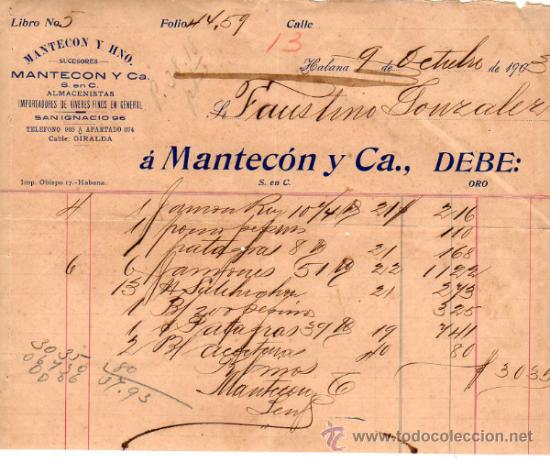 Libro No 5 Folio 44,59 Calle
13
MANTECON Y HNO.
SUCESORES
MANTECON Y Ca.
S. en C.
ALMACENISTAS
IMPORTADORES DE VIVERES FINOS EN GENERAL
SAN IGNACIO 96
TELEFONO APARTADO 674
Cable: GIRALDA
Habana 9 de Octubre de 1903
Sr. Faustino Gonzalez
á Mantecón y Ca., DEBE:
Imp. Obispo 17.-Habana. S. en C. ORO
4 1 Jamon 10 3/4 21 2 16
1 pepino 1 10
1 patagras 8 21 1 68
6 6 Jamones 51 22 11 22
13 21 2 73
1 B/ 200 pepino 3 25
1 Patagras 39 19 7 41
2 B/ 40 80
$ 30 35
Mantecon
30 35
80
37.93
todocoleccion
www.todocoleccion.net